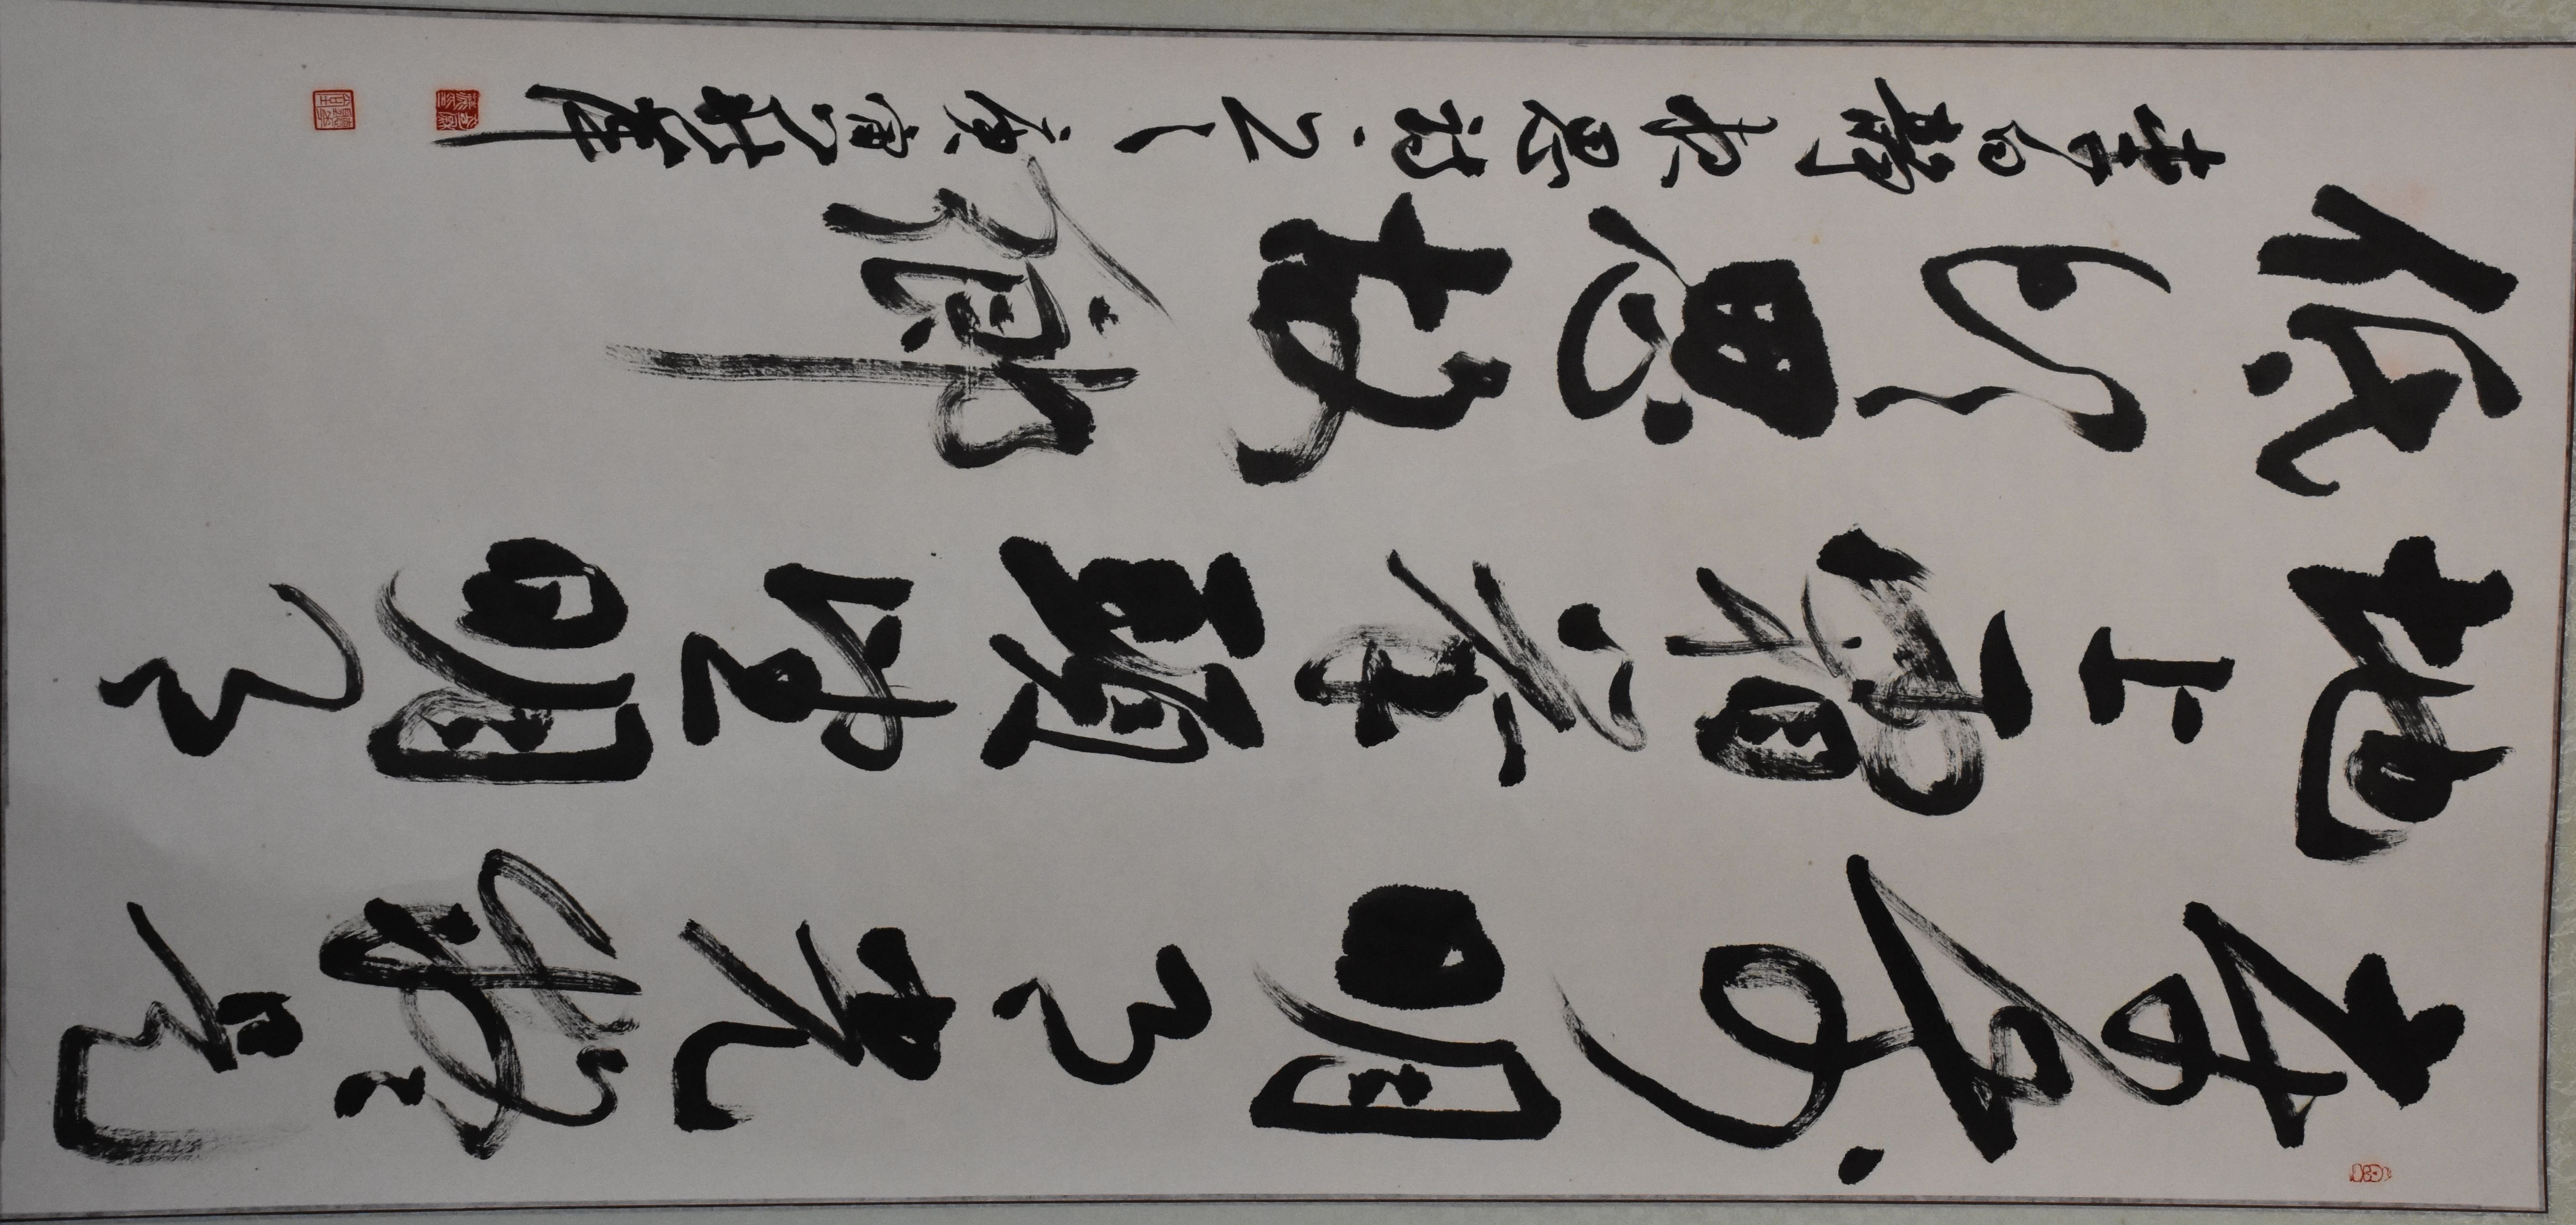 床前明月光疑是
地上霜舉頭望明月
低頭思故鄉
書白靜夜思詩之一庚寅